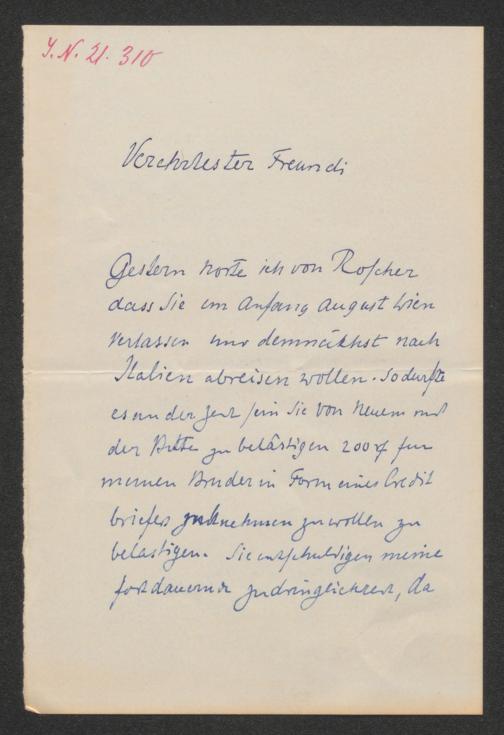 I.N. 21.310
Verehrtester Freund!
Gestern hörte ich von Roscher
dass Sie im Anfang August Wien
verlassen und demnächst nach
Italien abreisen wollen. So dürfte
es an der Zeit sein Sie von Neuem mit
der Bitte zu belästigen 200 f für
meinen Bruder in Form eines Credit
briefes zu wollen zu
belästigen. Sie entschuldigen meine
fortdauernde Zudringlichkeit, da